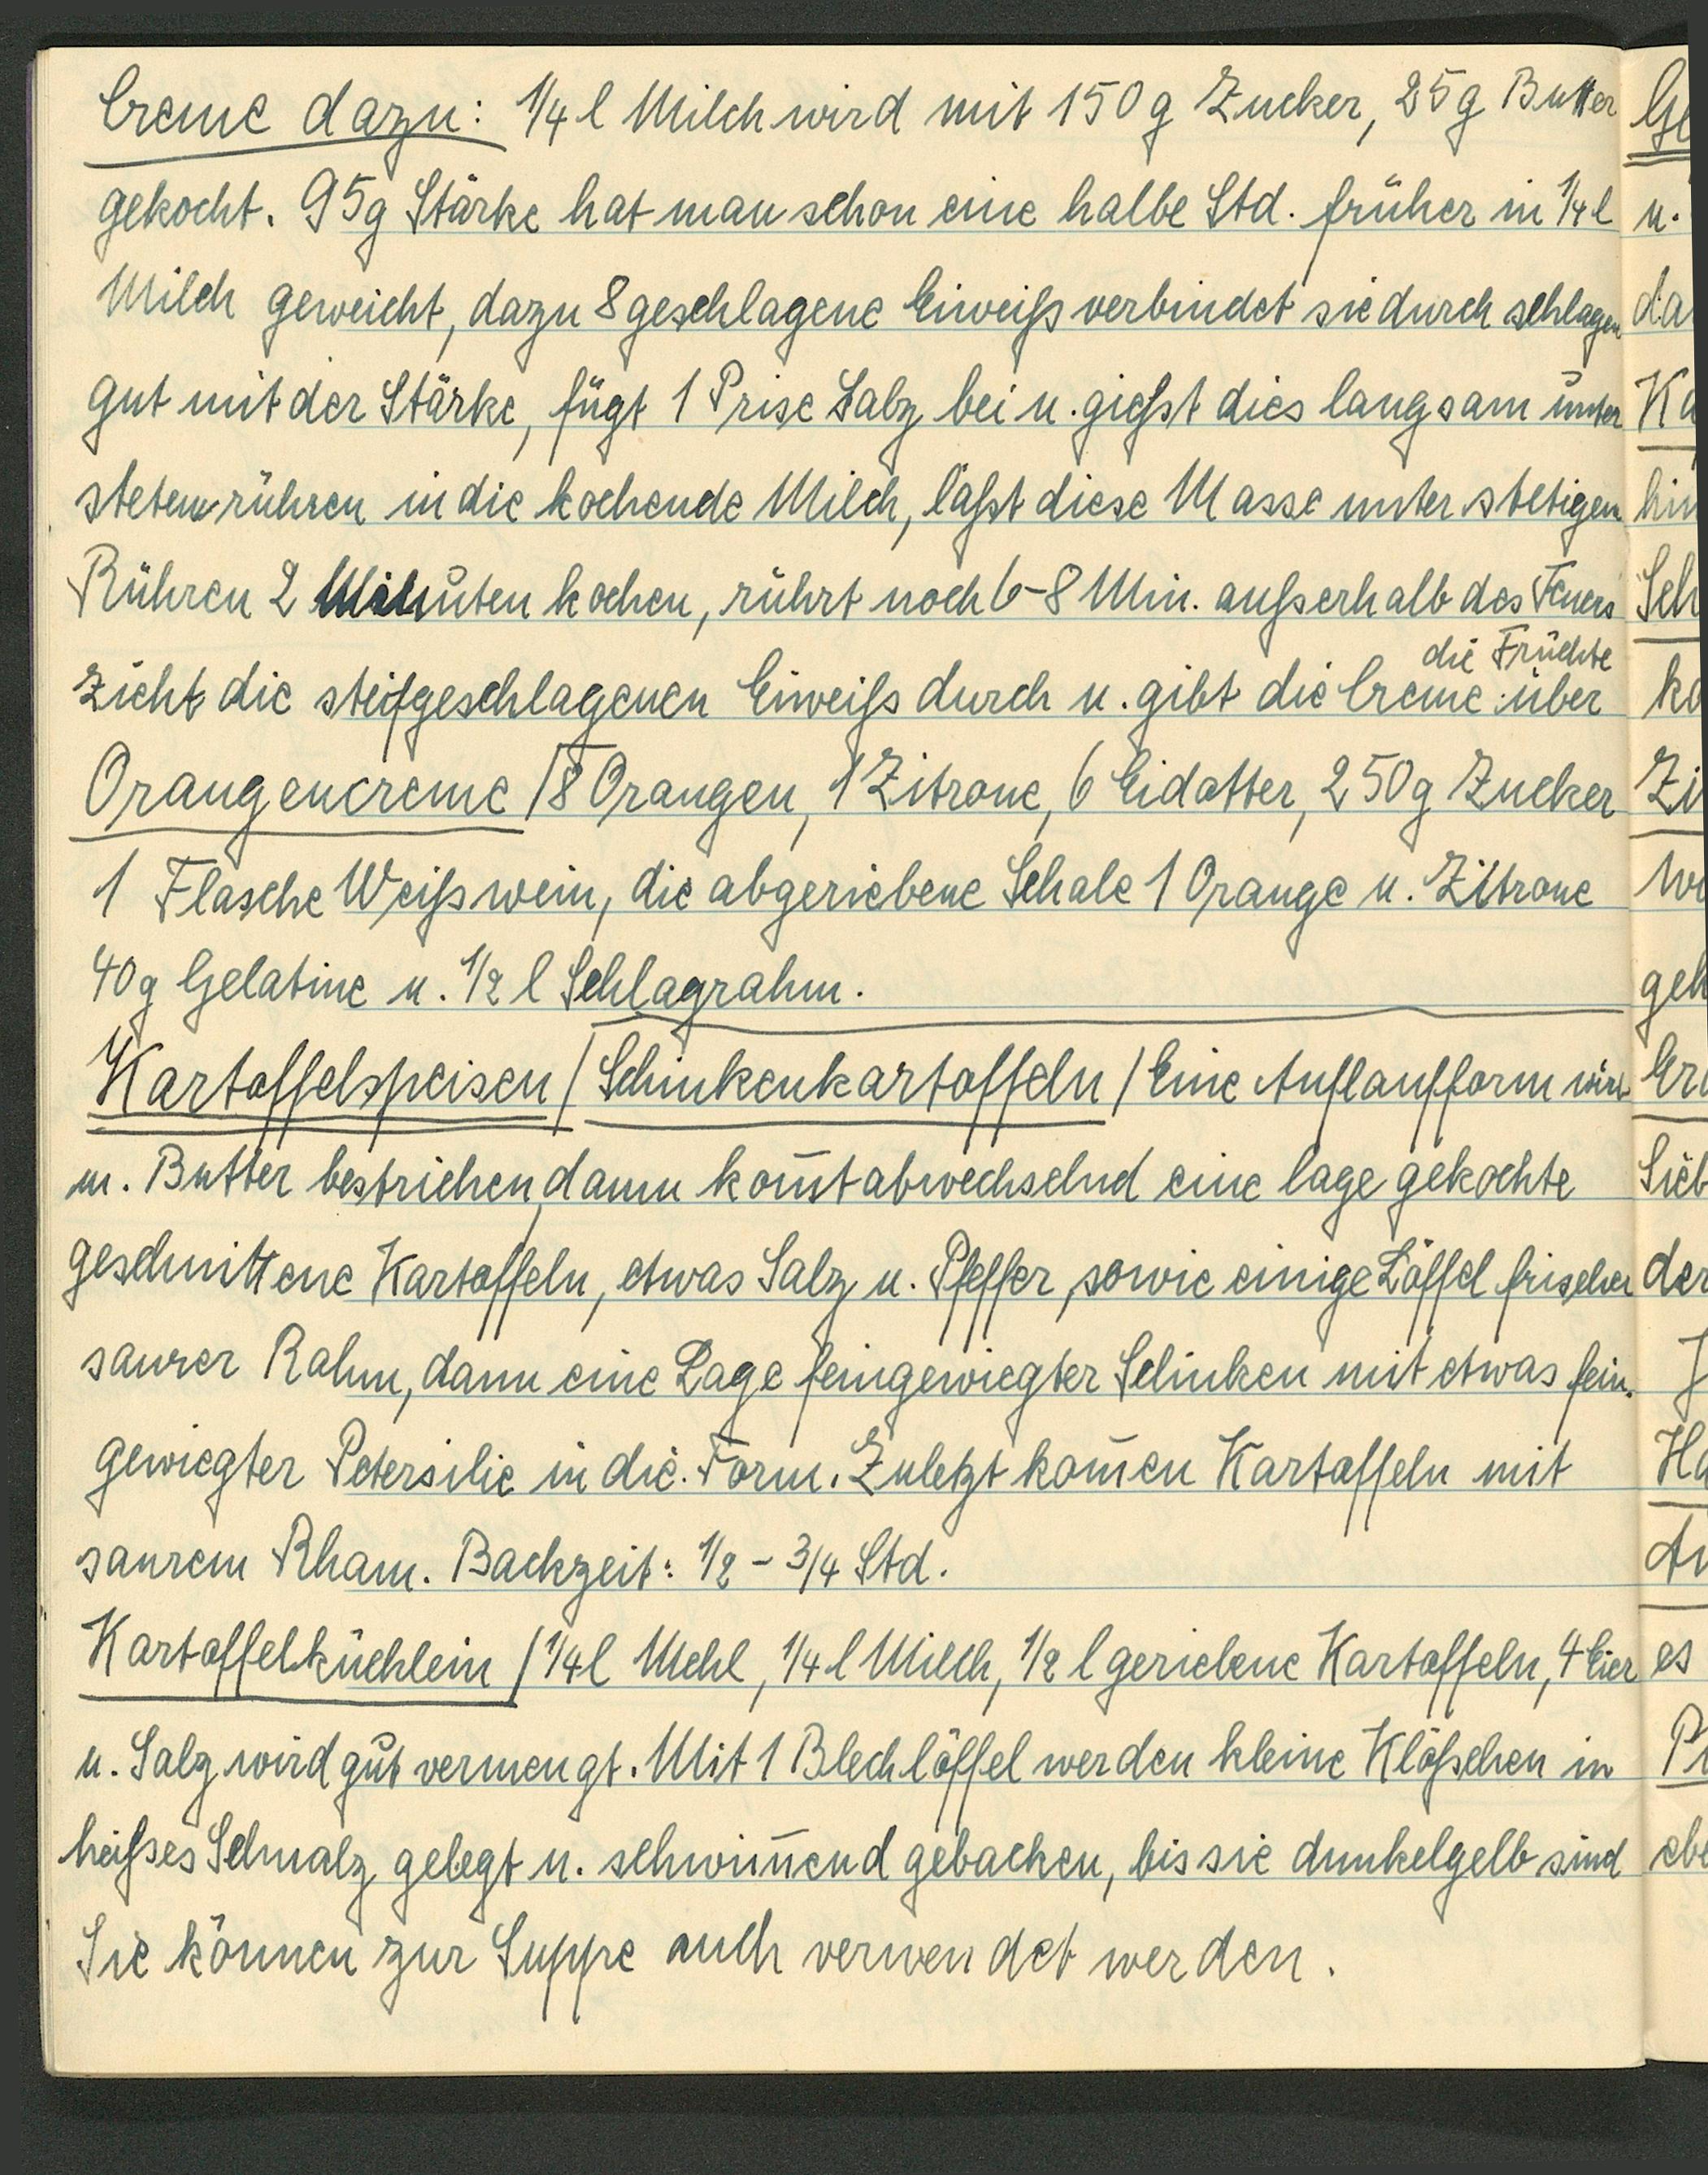 Creme dazu: 1/4 l Milch wird mit 150 g Zucker, 25 g Butter
gekocht. 95g Stärke hat man schon eine halbe Std. früher in 1/4 l
Milch geweicht, dazu 8 geschlagene Eiweiß verbindet sie durch schlagen
gut mit der Stärke, fügt 1 Prise Salz bei u. gießt dies langsam unter
stetem rühren in die kochende Milch, läßt diese Masse unter stetigen
Rühren 2 Minuten kochen, rührt noch 6-8 Min. außerhalb des Feuers
die Früchte
zieht die steifgeschlagenen Eiweiß durch u. gibt die Creme über
Orangencreme / 8 Orangen, 1 Zitrone, 6 Eidotter, 250g Zucker
1 Flasche Weißwein, die abgeriebene Schale 1 Orange u. Zitrone
40g Gelatine u. 1/2 l Schlagrahm.
Kartoffelspeisen / Schinkenkartoffeln / Eine Auflaufform wird
m. Butter bestrichen, dann kom̅t abwechselnd eine lage gekochte
geschnittene Kartoffeln, etwas Salz u. Pfeffer, sowie einige Löffel frischer
saurer Rahm, dann eine Lage feingewiegter Schinken mit etwas fein-
gewiegter Petersilie in die Form. Zuletzt kom̅en Kartoffeln mit
saurem Rham. Backzeit: 1/2 - 3/4 Std.
Kartoffelküchlein / 1/4 l Mehl, 1/4 l Milch, 1/2 l geriebene Kartoffeln, 4 Eier
u. Salz wird gut vermengt. Mit 1 Blechlöffel werden kleine Klößchen in
heißes Schmalz gelegt u. schwim̅end gebacken, bis sie dunkelgelb sind
Sie können zur Suppe auch verwendet werden.